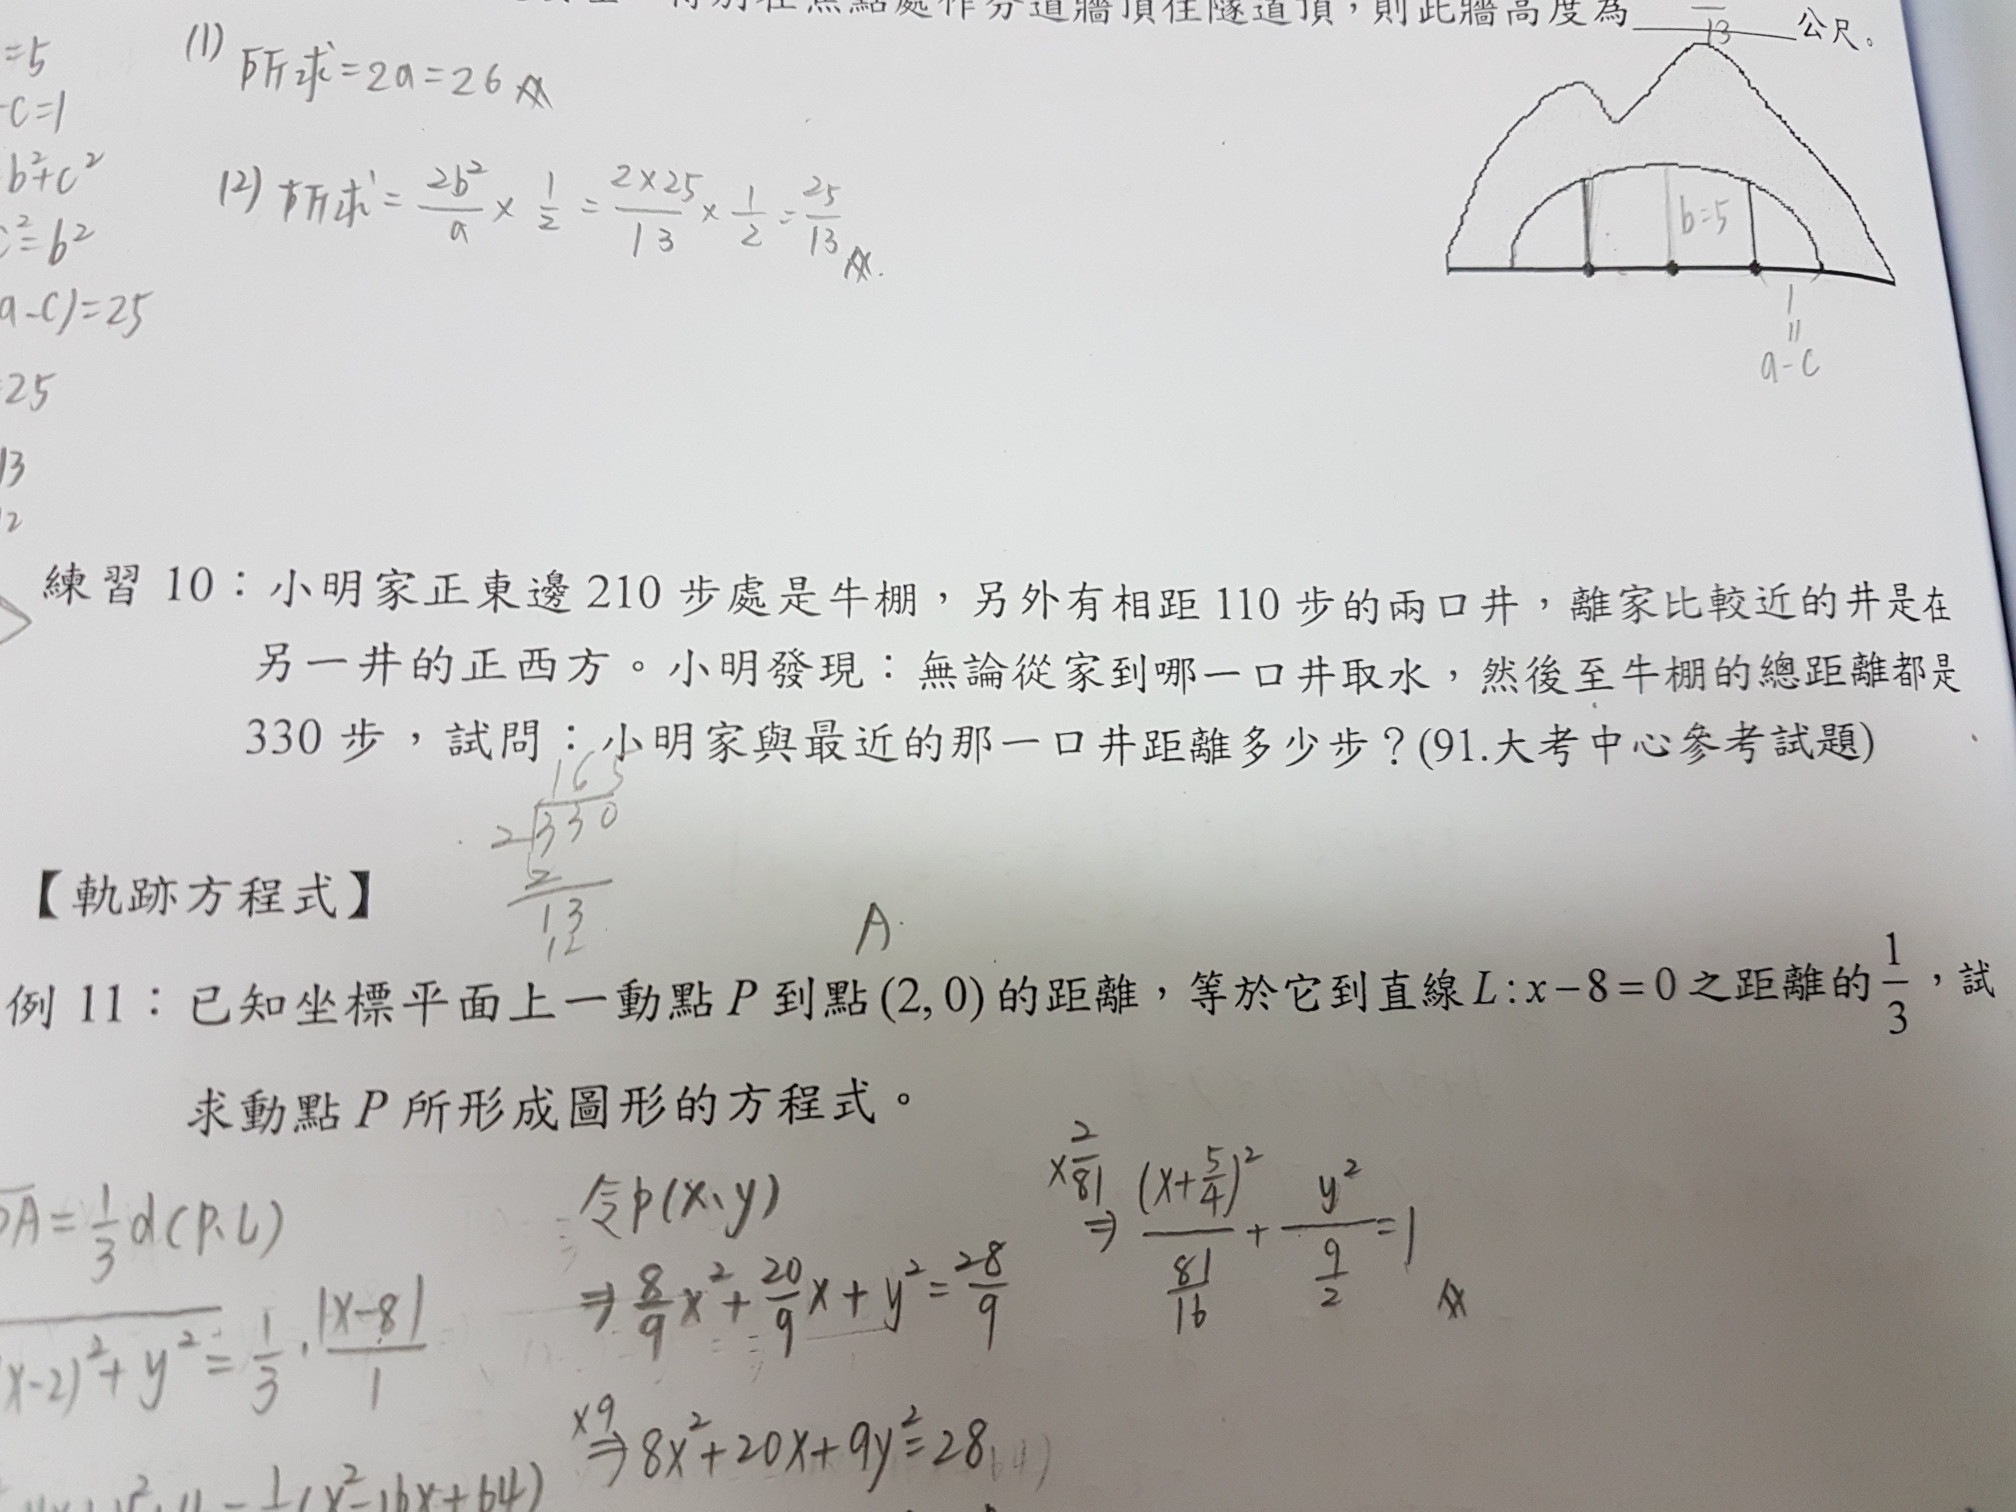 得別在焦點處作分道牆頂住隧道頂,則此牆高度為 13 公尺。
=5
-c=1
b²+c²
c²=b²
a-c)=25
=25
13
12
(1) 所求=2a=26
(2) 所求=2b²/a × 1/2 = 2×25/13 × 1/2 = 25/13
b=5
1
=
a-c
練習 10:小明家正東邊 210 步處是牛棚,另外有相距 110 步的兩口井,離家比較近的井是在
另一井的正西方。小明發現:無論從家到哪一口井取水,然後至牛棚的總距離都是
330 步,試問:小明家與最近的那一口井距離多少步?(91.大考中心參考試題)
165
2 330
2
13
12
【軌跡方程式】
A
例 11:已知坐標平面上一動點 P 到點 (2, 0) 的距離,等於它到直線 L : x − 8 = 0 之距離的 1/3,試
求動點 P 所形成圖形的方程式。
PA=1/3 d(P、L)
(x-2)²+y²=1/3·|x-8|/1
1/9(x²-16x+64)
令P(x、y)
⇒8/9x²+20/9x+y²=28/9
×9
⇒8x²+20x+9y²=28
×2/81
⇒ (x+5/4)²/(81/16) + y²/(9/2) =1